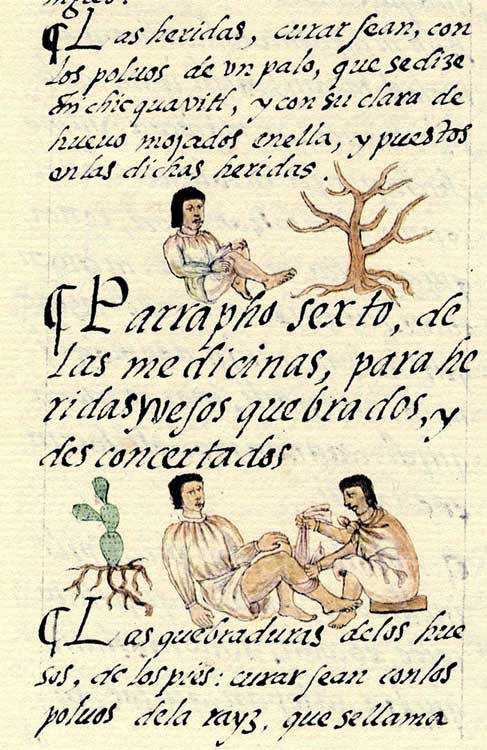 ¶ Las heridas, curar sean, con
los poluos de vn palo, que se dize
chicquavitl, y con su clara de
hueuo mojados enella, y puestos
enlas dichas heridas.
¶ Parrapho sexto, de
las medicinas, para he
ridas y vesos quebrados, y
desconcertados
¶ Las quebraduras delos hue
sos, de los pies: curar sean conlos
poluos dela rayz, que sellama